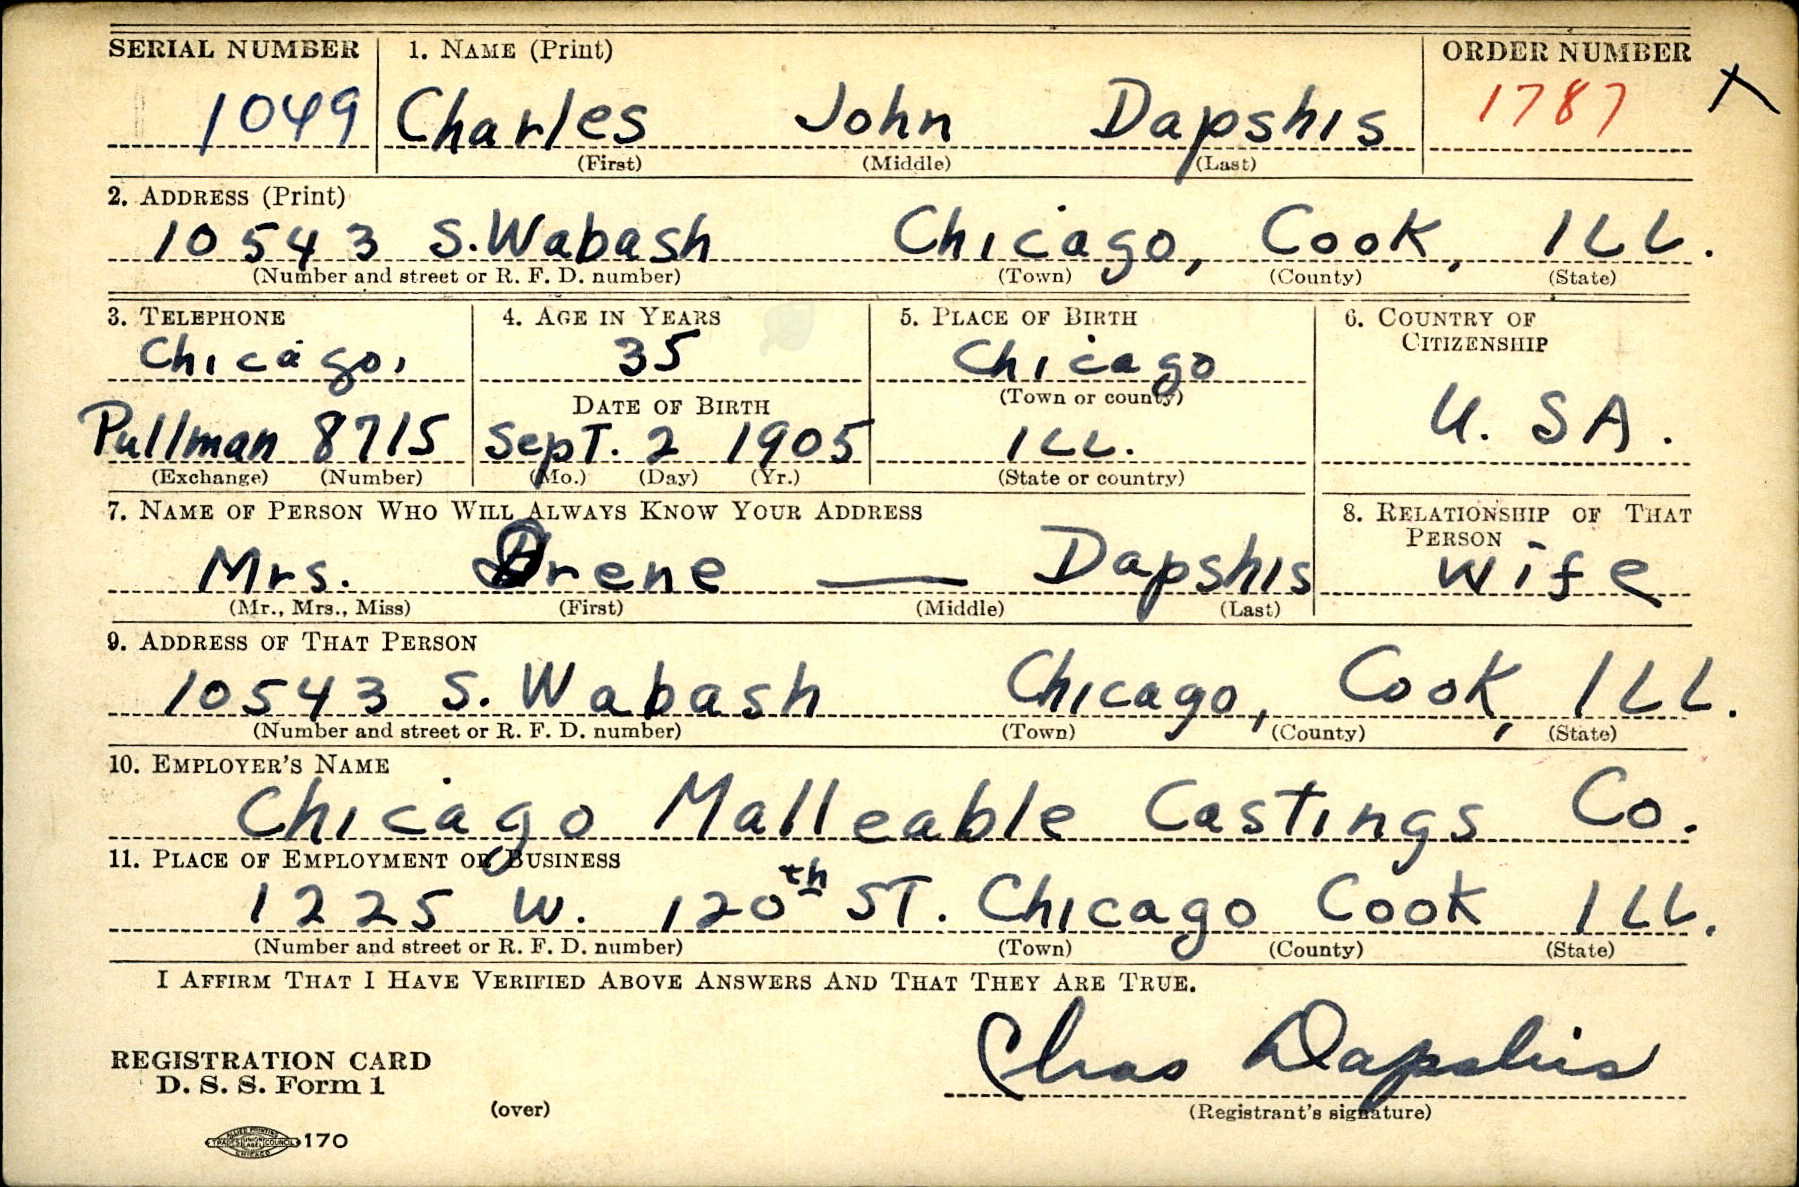 SERIAL NUMBER 1. NAME (Print) ORDER NUMBER
1049 Charles John Dapshis 1787 X
(First) (Middle) (Last)
2. ADDRESS (Print)
10543 S. Wabash Chicago, Cook, ILL.
(Number and street or R. F. D. number) (Town) (County) (State)
3. TELEPHONE 4. AGE IN YEARS 5. PLACE OF BIRTH 6. COUNTRY OF
CITIZENSHIP
Chicago, 35 Chicago
DATE OF BIRTH (Town or county)
Pullman 8715 Sept. 2 1905 ILL. U.SA.
(Exchange) (Number) (Mo.) (Day) (Yr.) (State or country)
7. NAME OF PERSON WHO WILL ALWAYS KNOW YOUR ADDRESS 8. RELATIONSHIP OF THAT
PERSON
Mrs. Irene — Dapshis wife
(Mr., Mrs., Miss) (First) (Middle) (Last)
9. ADDRESS OF THAT PERSON
10543 S. Wabash Chicago, Cook, ILL.
(Number and street or R. F. D. number) (Town) (County) (State)
10. EMPLOYER'S NAME
Chicago Malleable Castings Co.
11. PLACE OF EMPLOYMENT OR BUSINESS
1225 W. 120th ST. Chicago Cook ILL.
(Number and street or R. F. D. number) (Town) (County) (State)
I AFFIRM THAT I HAVE VERIFIED ABOVE ANSWERS AND THAT THEY ARE TRUE.
Chas Dapshis
REGISTRATION CARD
D. S. S. Form 1
(over) (Registrant's signature)
ALLIED PRINTING TRADES UNION LABEL COUNCIL CHICAGO 170